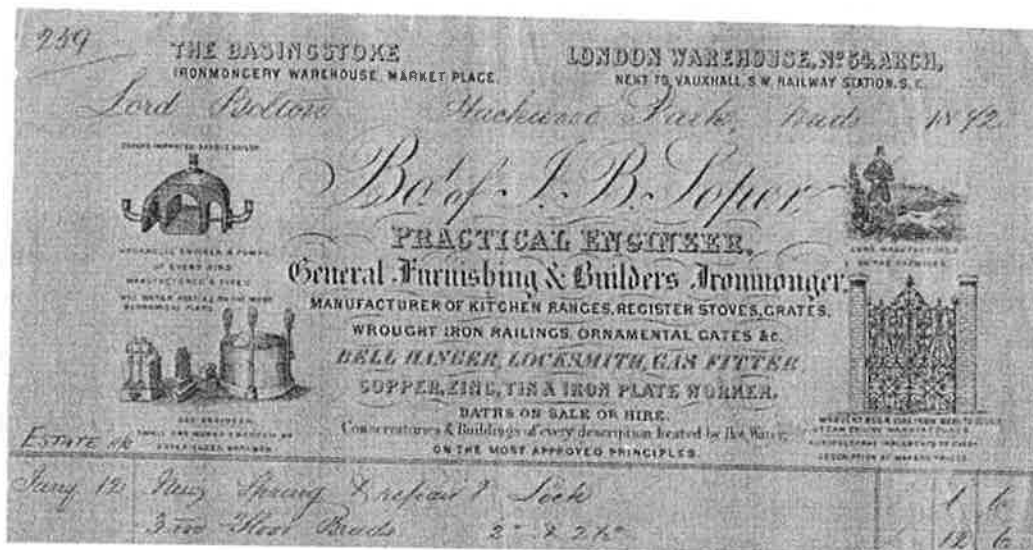 259
THE BASINGSTOKE
IRONMONGERY WAREHOUSE, MARKET PLACE.
LONDON WAREHOUSE, No. 54, ARCH,
NEXT TO VAUXHALL, S.W. RAILWAY STATION, S.E.
Lord Bolton Hackwood Park, 18
Bot. of J. B. Soper,
PRACTICAL ENGINEER,
General Furnishing & Builders Ironmonger,
MANUFACTURER OF KITCHEN RANGES, REGISTER STOVES, GRATES,
WROUGHT IRON RAILINGS, ORNAMENTAL GATES &c.
BELL HANGER, LOCKSMITH, GAS FITTER
COPPER, ZINC, TIN & IRON PLATE WORKER.
BATHS ON SALE OR HIRE.
Conservatories & Buildings of every description heated by Hot Water,
ON THE MOST APPROVED PRINCIPLES.
HYDRAULIC ENGINES & PUMPS
OF EVERY KIND
MANUFACTURED & FIXED
GAS ENGINEER
GUNS MANUFACTURED
ON THE PREMISES
ESTATE a/c
Jany 12 New Spring & repair Lock 1 6
Floor Brads 2" & 2½" 12 6